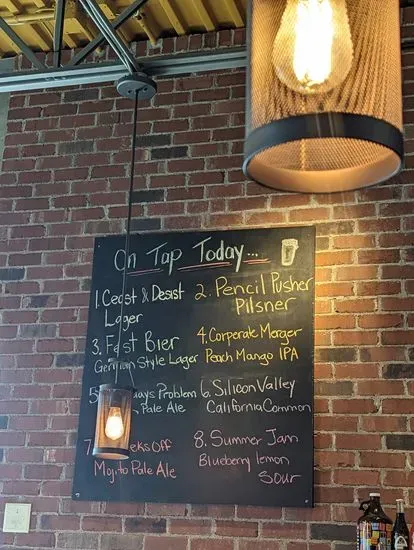 On Tap Today...
1. Ceast & Desist
Lager
2. Pencil Pusher
Pilsner
3. Fest Bier
German Style Lager
4. Corperate Merger
Peach Mango IPA
5. Problem
Pale Ale
6. Silicon Valley
California Common
7. Off
Mojito Pale Ale
8. Summer Jam
Blueberry lemon
Sour